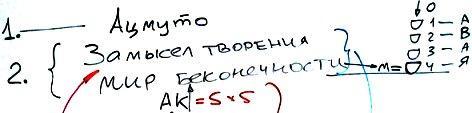 1. Ацмуто
2. { Замысел творения
мир бесконечности } → М=
АК = 5 x 5
0
1 — А
2 — В
3 — А
4 — Я